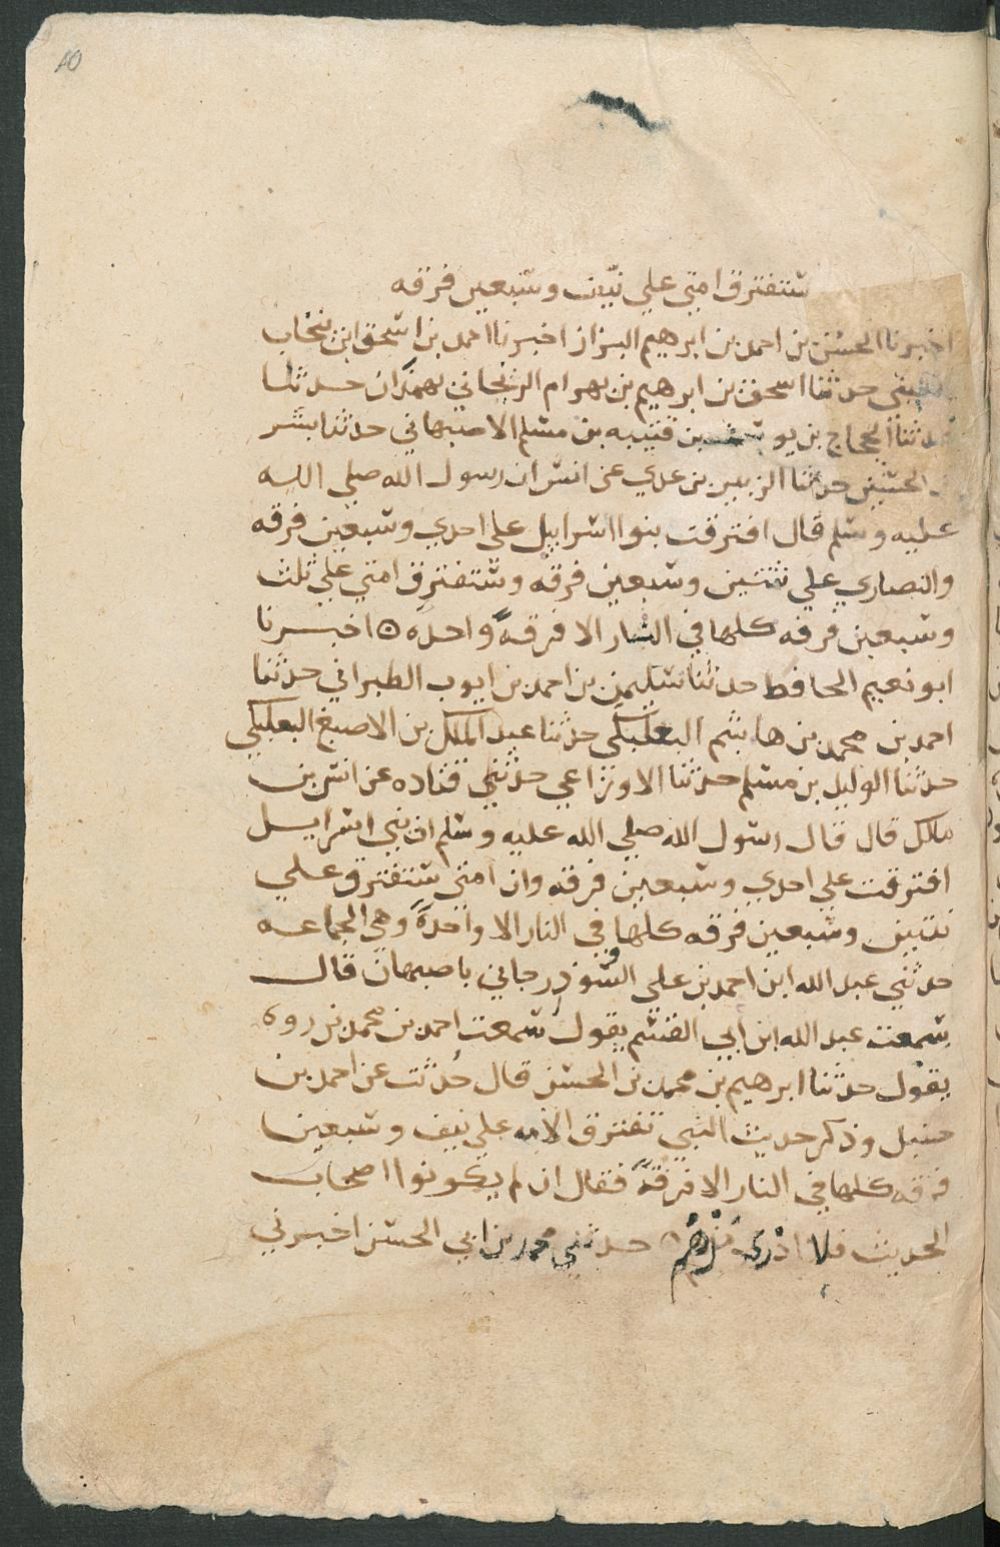 ستفترق امتي علي نيف وسبعين فرقه
اخبرنا الحسن بن احمد بن ابرهيم البزاز اخبرنا احمد بن اسحق ابن نيخاب
حدثنا اسحق بن ابرهيم بن بهرام الزنجاني بهمذان حدثنا
حدثنا الحجاج بن يوسف بن قتيبه بن مسلم الاصبهاني حدثنا بشر
بن الحسين حدثنا الزبير بن عدي عن انس ان رسول الله صلى الله
عليه وسلم قال افترقت بنوا اسرايل على احدي وسبعين فرقه
والنصاري علي ثنتين وسبعين فرقه وستفترق امتي علي ثلث
وسبعين فرقه كلها في النار الا فرقةً واحده ه اخبرنا
ابو نعيم الحافظ حدثنا سليمن بن احمد بن ايوب الطبراني حدثنا
احمد بن محمد بن هاشم البعلبكي حدثنا عبد الملك بن الاصبغ البعلبكي
حدثنا الوليد بن مسلم حدثنا الاوزاعي حدثني قتاده عن انس بن
ملك قال قال رسول الله صلي الله عليه وسلم ان بني اسرايل
افترقت علي احدي وسبعين فرقه وان امتي ستفترق علي
ثنتين وسبعين فرقه كلها في النار الا واحدةً وهي الجماعه
حدثني عبد الله ابن احمد بن علي السوذرجاني باصبهان قال
سمعت عبد الله ابن ابي القسم يقول سمعت احمد بن محمد بن روه
يقول حدثنا ابرهيم بن محمد بن الحسن قال حُدثت عن احمد بن
حنبل وذكر حديث النبي تفترق الامه علي نيف وسبعين
فرقه كلها في النار الا فرقةً فقال ان لم يكونوا اصحاب
الحديث فلا ادري من هم ه حدثني محمد بن ابي الحسن اخبرني